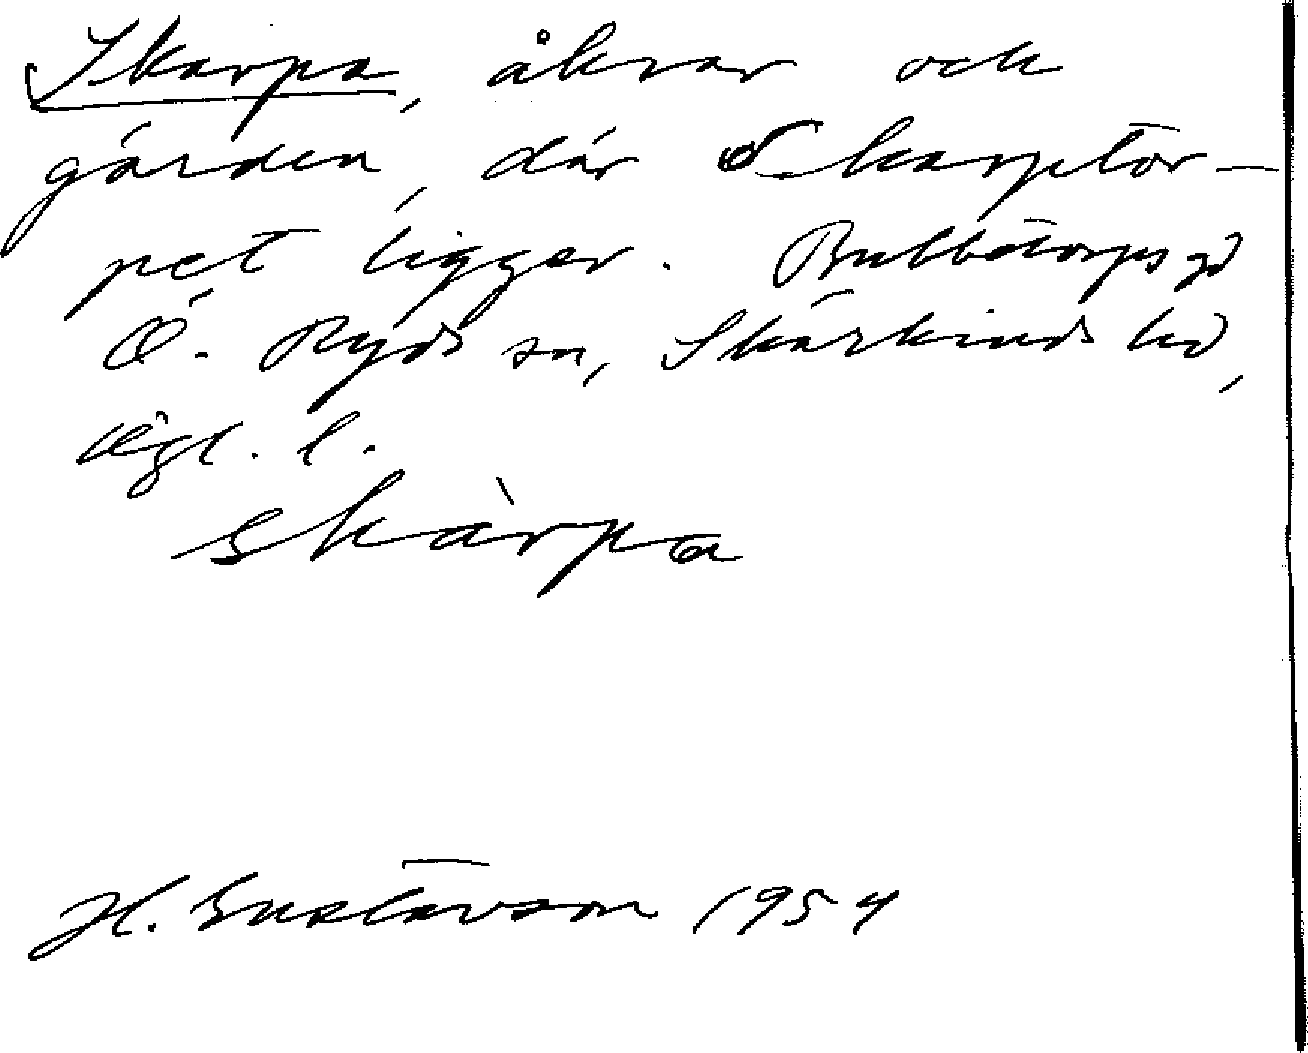 Skarpa, åkrar och
gärden, där Skarptor-
pet ligger. Bulbotorps gd
Ö. Ryds sn, Skärkinds hd,
Ögl. l.
skàrpa
H. Gustavson 1954